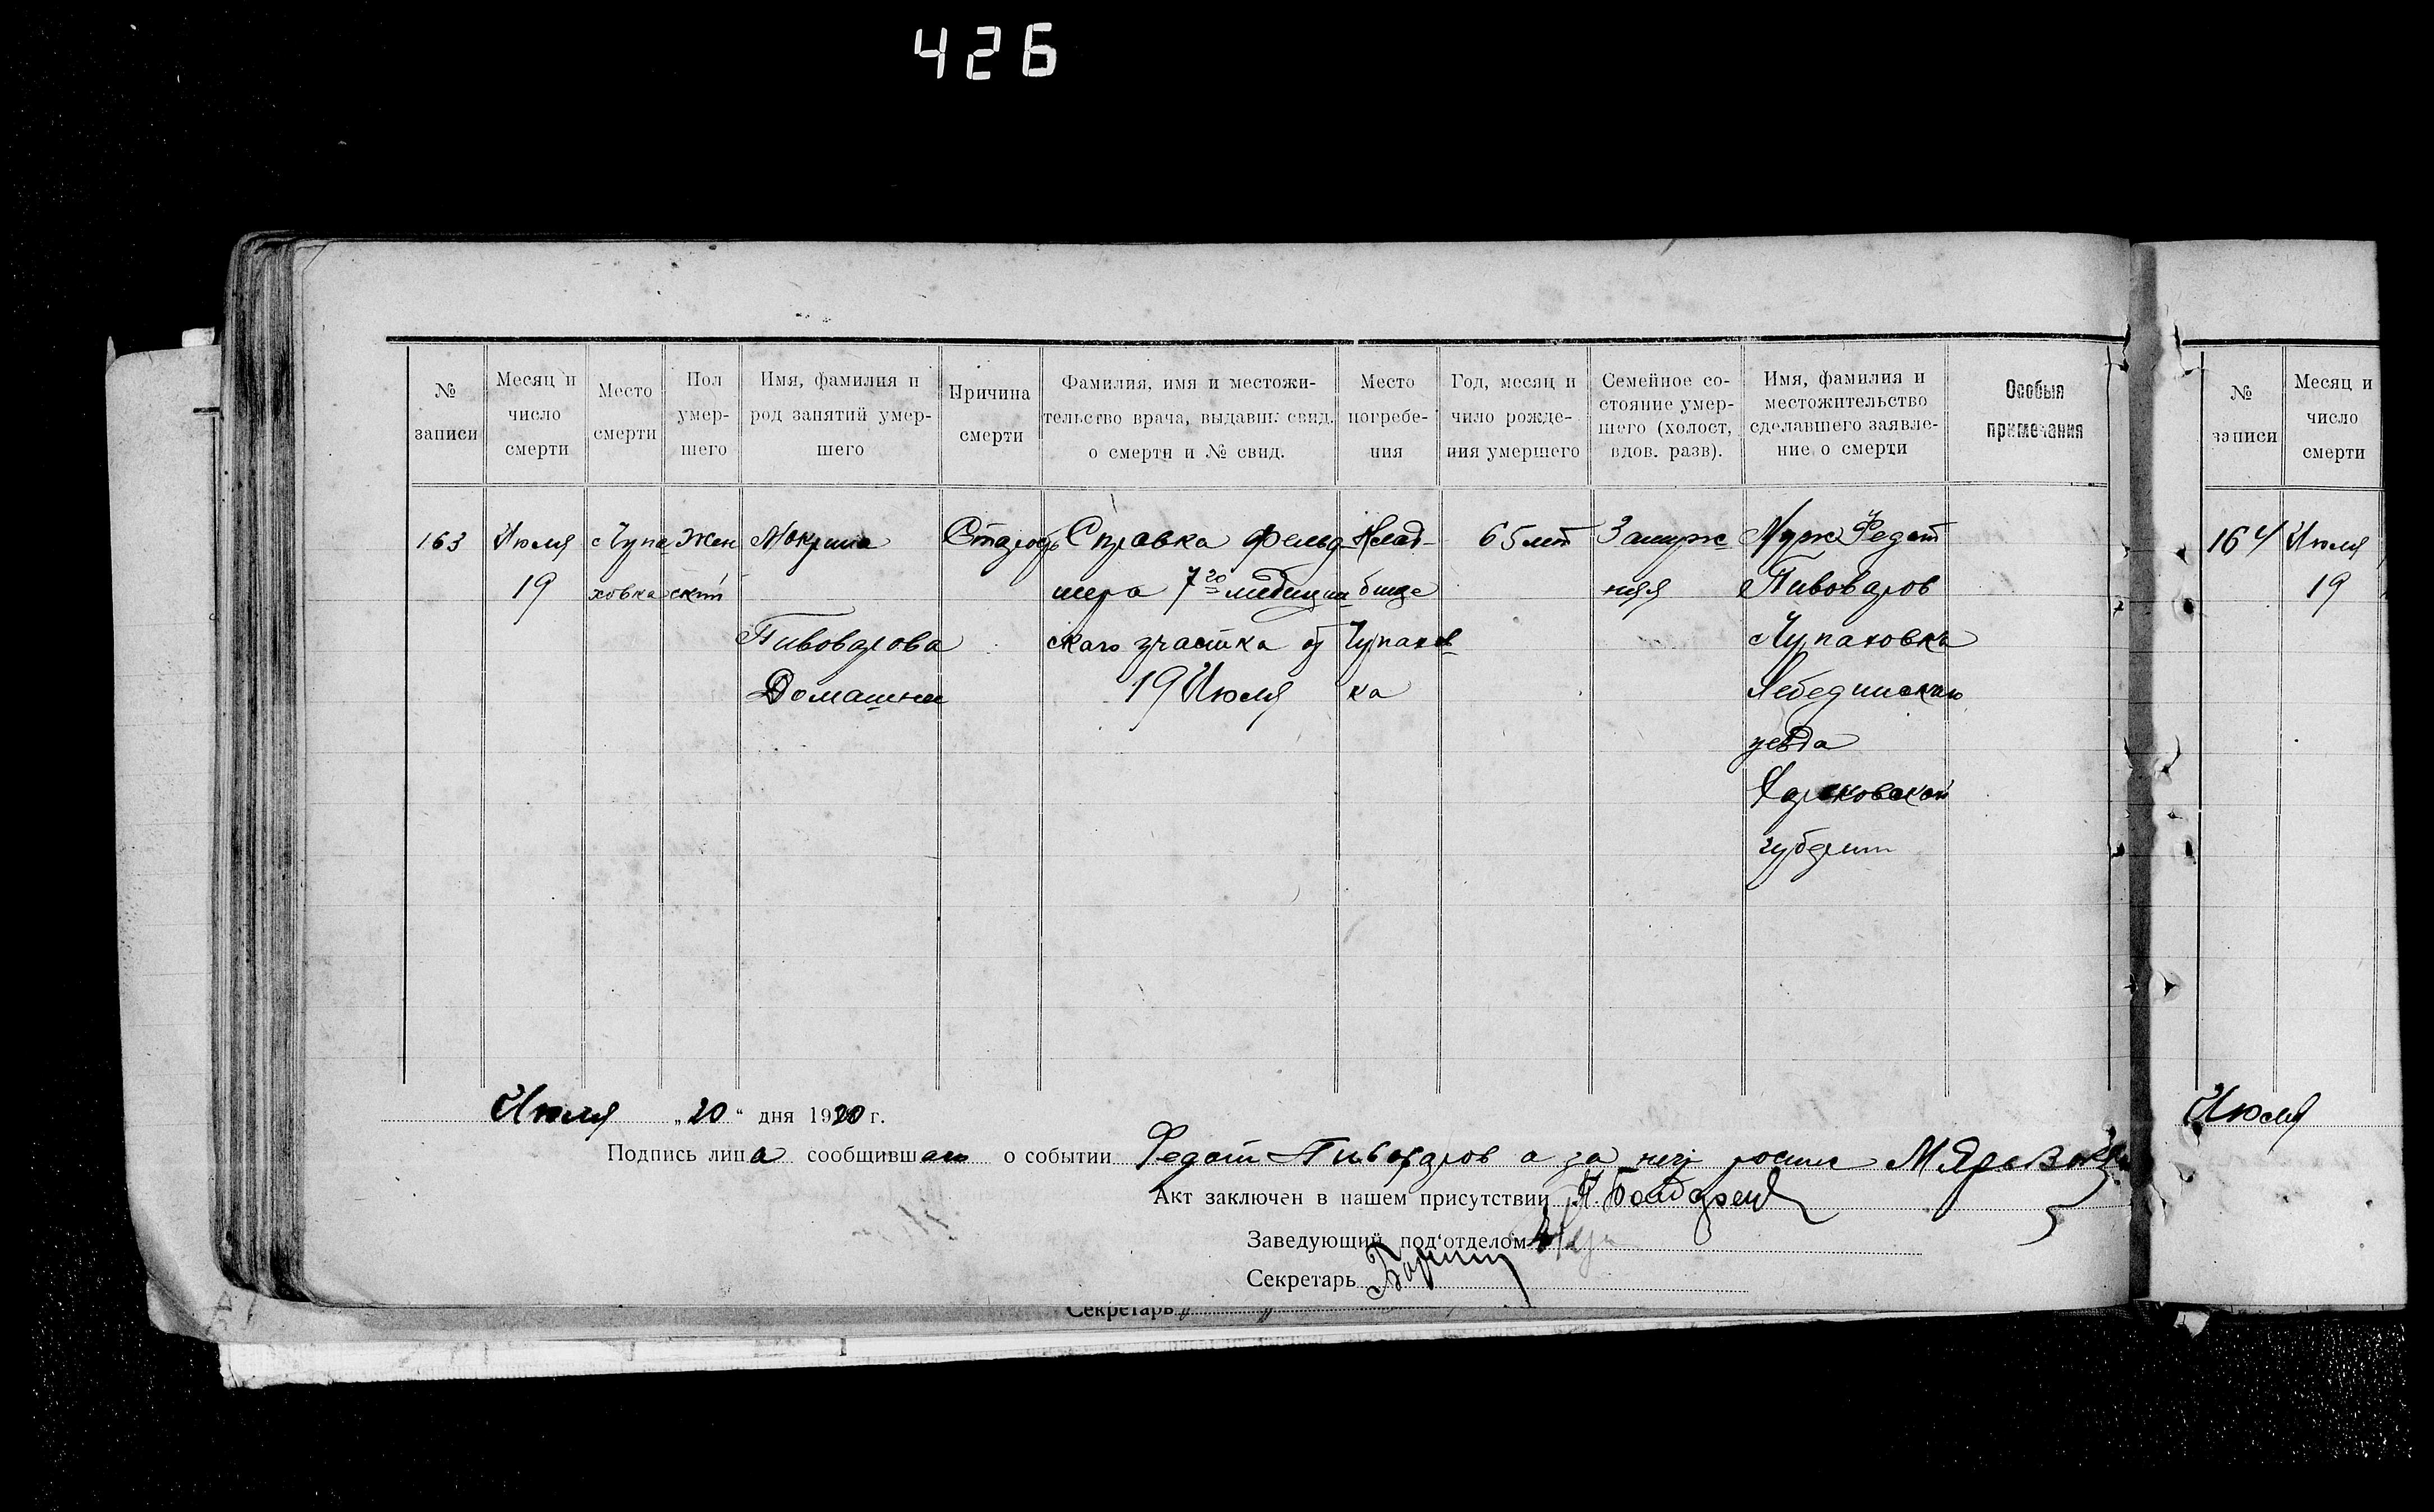 426
№ записи
Месяц и число смерти
Место смерти
Пол умер-шего
Имя, фамилия и род занятий умер-шего
Причина смерти
Фамилия, имя и местожи-тельство врача, выдавш. свид. о смерти и № свид.
Место погребе-ния
Год, месяц и число рожде-ния умершего
Семейное со-стояние умер-шего (холост, вдов. разв).
Имя, фамилия и местожительство сделавшего заявле-ние о смерти
Особыя примечания
163
Июля
19
с Чупа
ховка
Жен
ский
Мокрина
Пивоварова
Домашни
Старость
Справка фельд
шера 7го медицин
скаго участка от
19 Июля
Клад-
бище
Чупахов
ка
65 лет
Замуж
няя
Муж Федот
Пивоваров
с Чупаховка
Лебединскаго
уезда
Харьковской
губернии
Июля „20“ дня 1920 г.
Подпись лица сообщившаго о событии Федот Пивоваров а за него
Акт заключен в нашем присутствии
Заведующий под'отделом
Секретарь
Секретарь
№ записи
Месяц и число смерти
164
Июля
19
Июля